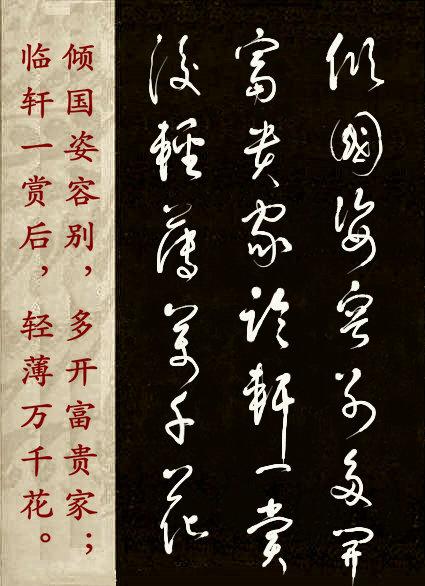 倾国姿容别，多开富贵家；
临轩一赏后，轻薄万千花。
倾國姿容别多開
富贵家临軒一赏
後輕薄万千花